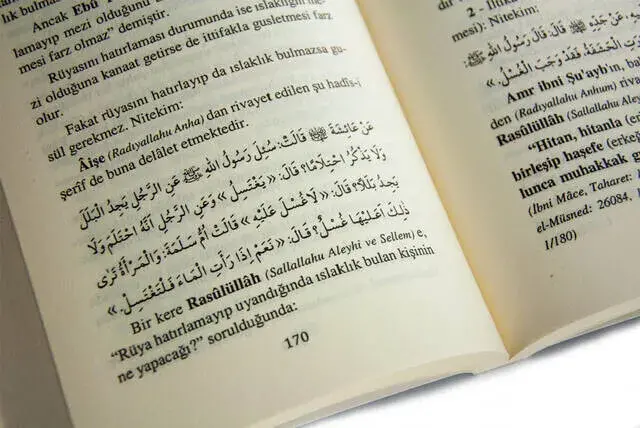 Ancak Ebû
lamayıp mezi olduğunu
mesi farz olmaz” demiştir.
Rüyasını hatırlaması durumunda ise ıslaklığın me-
zi olduğuna kanaat getirse de ittifakla gusletmesi farz
olur.
Fakat rüyasını hatırlayıp da ıslaklık bulmazsa gu-
sül gerekmez. Nitekim:
Âişe (Radıyallahu Anha) dan rivayet edilen şu hadîs-i
şerîf de buna delâlet etmektedir.
عَنْ عَائِشَةَ ﷺ قَالَتْ: سُئِلَ رَسُولُ اللهِ ﷺ عَنِ الرَّجُلِ يَجِدُ الْبَلَلَ
وَلَا يَذْكُرُ احْتِلَامًا؟ قَالَ: «يَغْتَسِلُ» وَعَنِ الرَّجُلِ أَنَّهُ احْتَلَمَ وَلَا
يَجِدُ بَلَلًا؟ قَالَ: «لَا غُسْلَ عَلَيْهِ» قَالَتْ أُمُّ سَلَمَةَ: وَالْمَرْأَةُ تَرَى
ذٰلِكَ أَعَلَيْهَا غُسْلٌ؟ قَالَ: «نَعَمْ إِذَا رَأَتِ الْمَاءَ فَلْتَغْتَسِلْ.»
Bir kere Rasûlüllâh (Sallallahu Aleyhi ve Sellem) e,
“Rüya hatırlamayıp uyandığında ıslaklık bulan kişinin
ne yapacağı?” sorulduğunda:
170
2 - İltika
mesi): Nitekim:
عَنْ جَدِّهِ قَالَ: قَالَ رَسُولُ اللهِ ﷺ:
الْحَشَفَةُ، فَقَدْ وَجَبَ الْغُسْلُ.»
Amr ibni Şu'ayb'ın, bab
den (Radıyallahu Anhum) riva
Rasûlüllâh (Sallallahu Aley
“Hitan, hitanla (erke
birleşip haşefe (erkeğ
lunca muhakkak g
(İbni Mâce, Taharet:
el-Müsned: 26084,
1/180)